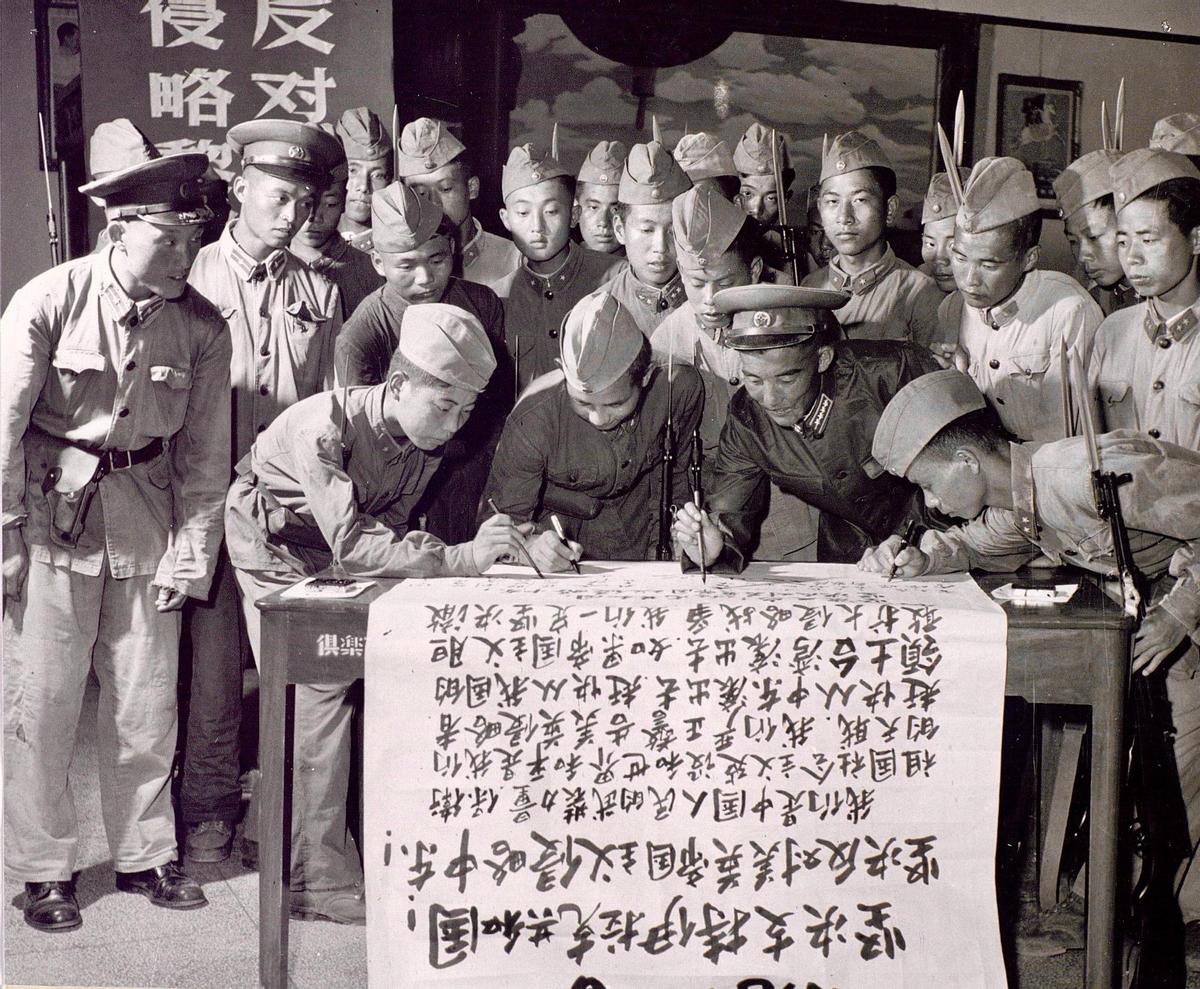 反对
侵略
俱樂
坚决支持伊拉克共和国!
坚决反对美英帝国主义侵略中东!
我们是中国人民的武装力量保衛
祖国社会主义建设和世界和平是我们
的天职.我们严正警告美英侵略者
赶快从中东滚出去赶快从我国的
領土台湾滚出去如果帝国主义胆
敢扩大侵略战争我们一定坚决徹